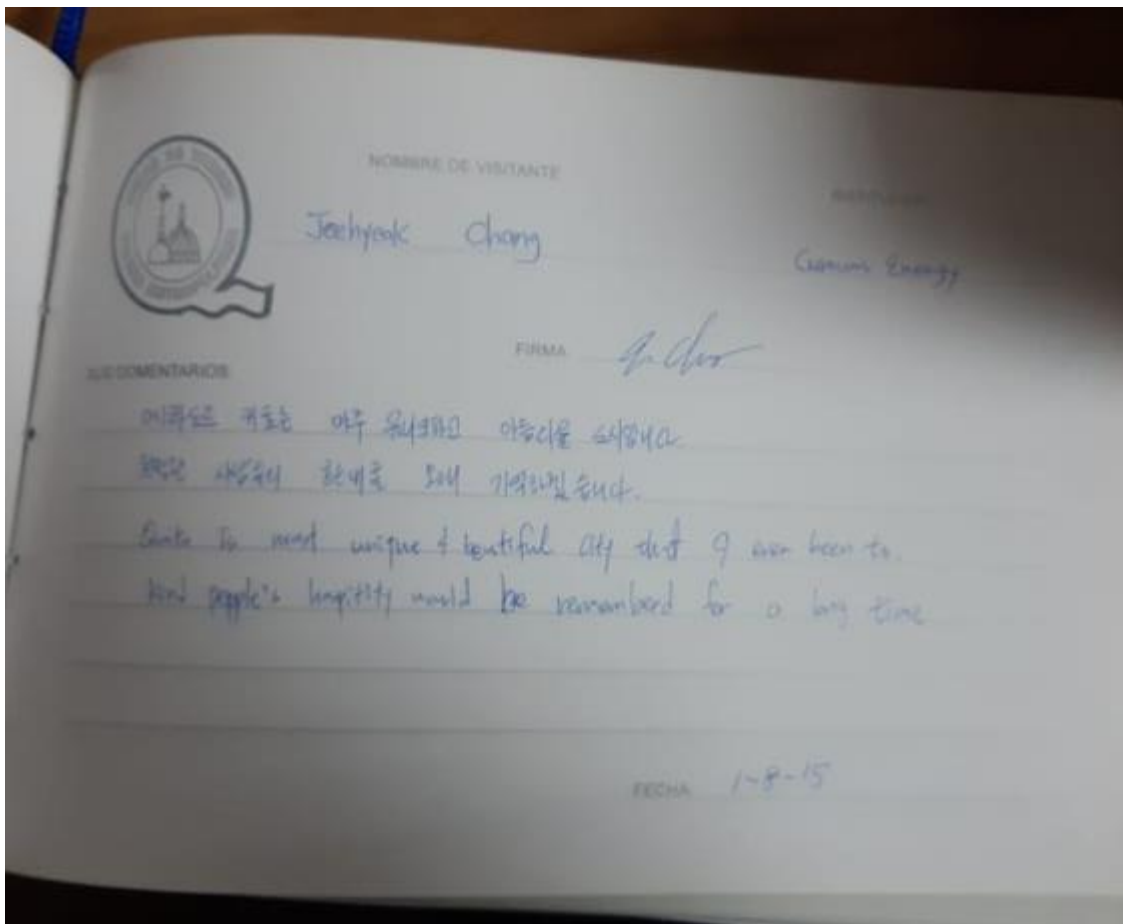 NOMBRE DE VISITANTE
Jeehyeok Chang
Energy
FIRMA
SUS COMENTARIOS
에콰도르 키토는 아주 유니크하고 아름다운 도시입니다
사람들의 환대를 오래 기억하겠습니다.
Quito is most unique & beutiful city that I ever been to.
kind people's would be remembered for a long time
FECHA 1-8-15